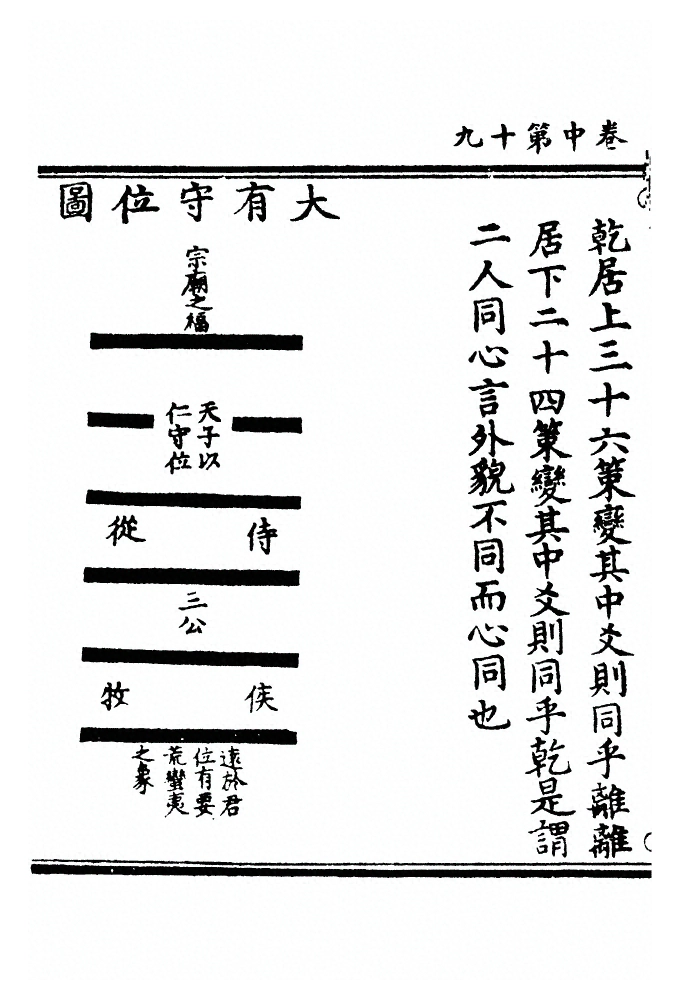 卷中第十九
乾居上三十六策變其中爻則同乎離離
居下二十四策變其中爻則同乎乾是謂
二人同心言外貌不同而心同也
大有守位圖
宗廟之福
天子以
仁守位
侍從
三公
侯牧
遠於君
位有要
荒蠻夷
之象